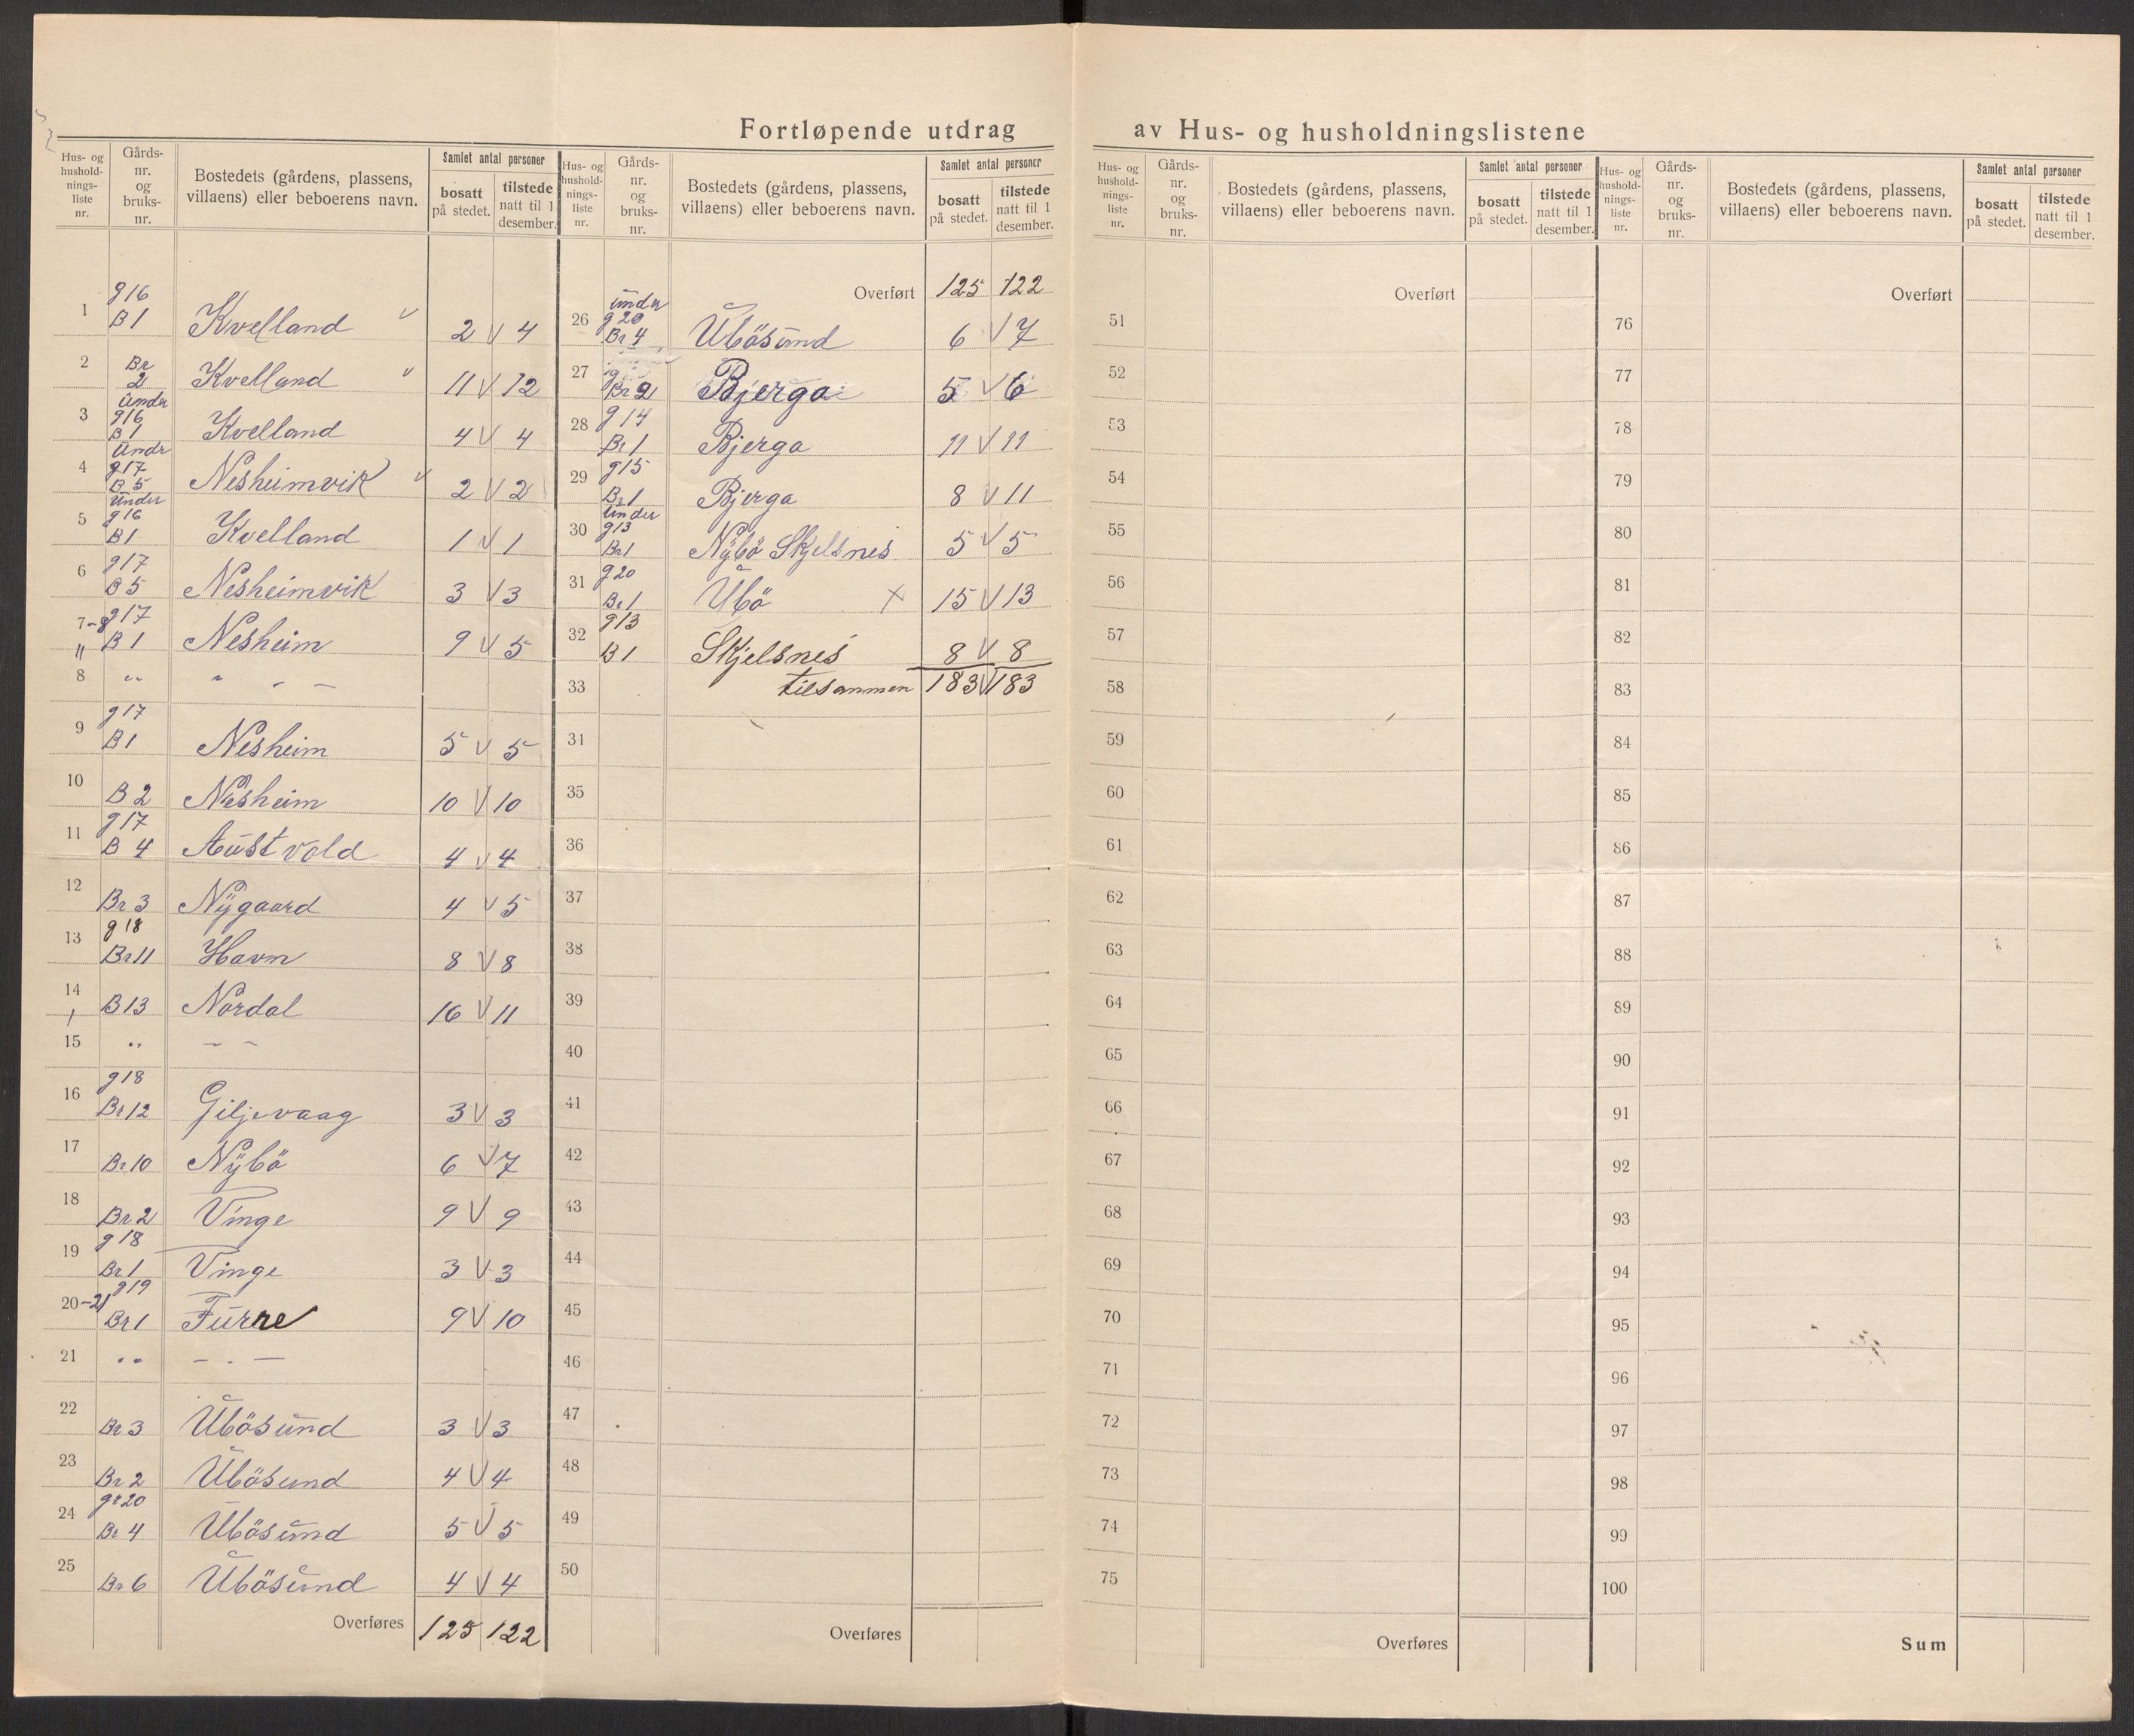 Fortløpende utdrag av Hus- og husholdningslistene
Hus- og hushold-nings-liste nr. | Gårds-nr. og bruks-nr. | Bostedets (gårdens, plassens, villaens) eller beboerens navn. | Samlet antal personer | bosatt på stedet. | tilstede natt til 1 desember.
1 g16 B1 Kvelland 2 V 4
2 Br 2 Kvelland 11 V 12
3 Under g16 B1 Kvelland 4 V 4
4 Undr g17 B5 Nesheimvik 2 V 2
5 Under g16 B1 Kvelland 1 V 1
6 g17 B5 Nesheimvik 3 V 3
7-8 g17 B1 Nesheim 9 V 5
8 " " - -
9 g17 B1 Nesheim 5 V 5
10 B2 Nesheim 10 V 10
11 g17 B4 Austvold 4 V 4
12 Br3 Nÿgaard 4 V 5
13 g18 Br11 Havn 8 V 8
14 B13 Nordal 16 V 11
15 " - -
16 g18 Br12 Giljevaag 3 V 3
17 Br10 Nÿbö 6 V 7
18 Br2 Vinge 9 V 9
19 g18 Br1 Vinge 3 V 3
20-21 g19 Br1 Furre 9 V 10
21 " - " -
22 Br3 Ubösund 3 V 3
23 Br2 Ubösund 4 V 4
24 gr20 Br4 Ubösund 5 V 5
25 Br6 Ubösund 4 V 4
Overføres 125 122
Hus- og hushold-nings-liste nr. | Gårds-nr. og bruks-nr. | Bostedets (gårdens, plassens, villaens) eller beboerens navn. | Samlet antal personer | bosatt på stedet. | tilstede natt til 1 desember.
Overført 125 122
26 under g20 Br4 Ubösund 6 V 7
27 Br2 Bjerga 5 V 6
28 g14 Br1 Bjerga 11 V 11
29 g15 Br1 Bjerga 8 V 11
30 Under g13 Br1 Nÿbö Skjelsnes 5 V 5
31 g20 Br1 Ubö X 15 V 13
32 g13 B1 Skjelsnes 8 V 8
33 tilsammen 183 V 183
31
35
36
37
38
39
40
41
42
43
44
45
46
47
48
49
50
Overføres
Hus- og hushold-nings-liste nr. | Gårds-nr. og bruks-nr. | Bostedets (gårdens, plassens, villaens) eller beboerens navn. | Samlet antal personer | bosatt på stedet. | tilstede natt til 1 desember.
Overført
51
52
53
54
55
56
57
58
59
60
61
62
63
64
65
66
67
68
69
70
71
72
73
74
75
Overføres
Hus- og hushold-nings-liste nr. | Gårds-nr. og bruks-nr. | Bostedets (gårdens, plassens, villaens) eller beboerens navn. | Samlet antal personer | bosatt på stedet. | tilstede natt til 1 desember.
Overført
76
77
78
79
80
81
82
83
84
85
86
87
88
89
90
91
92
93
94
95
96
97
98
99
100
Sum